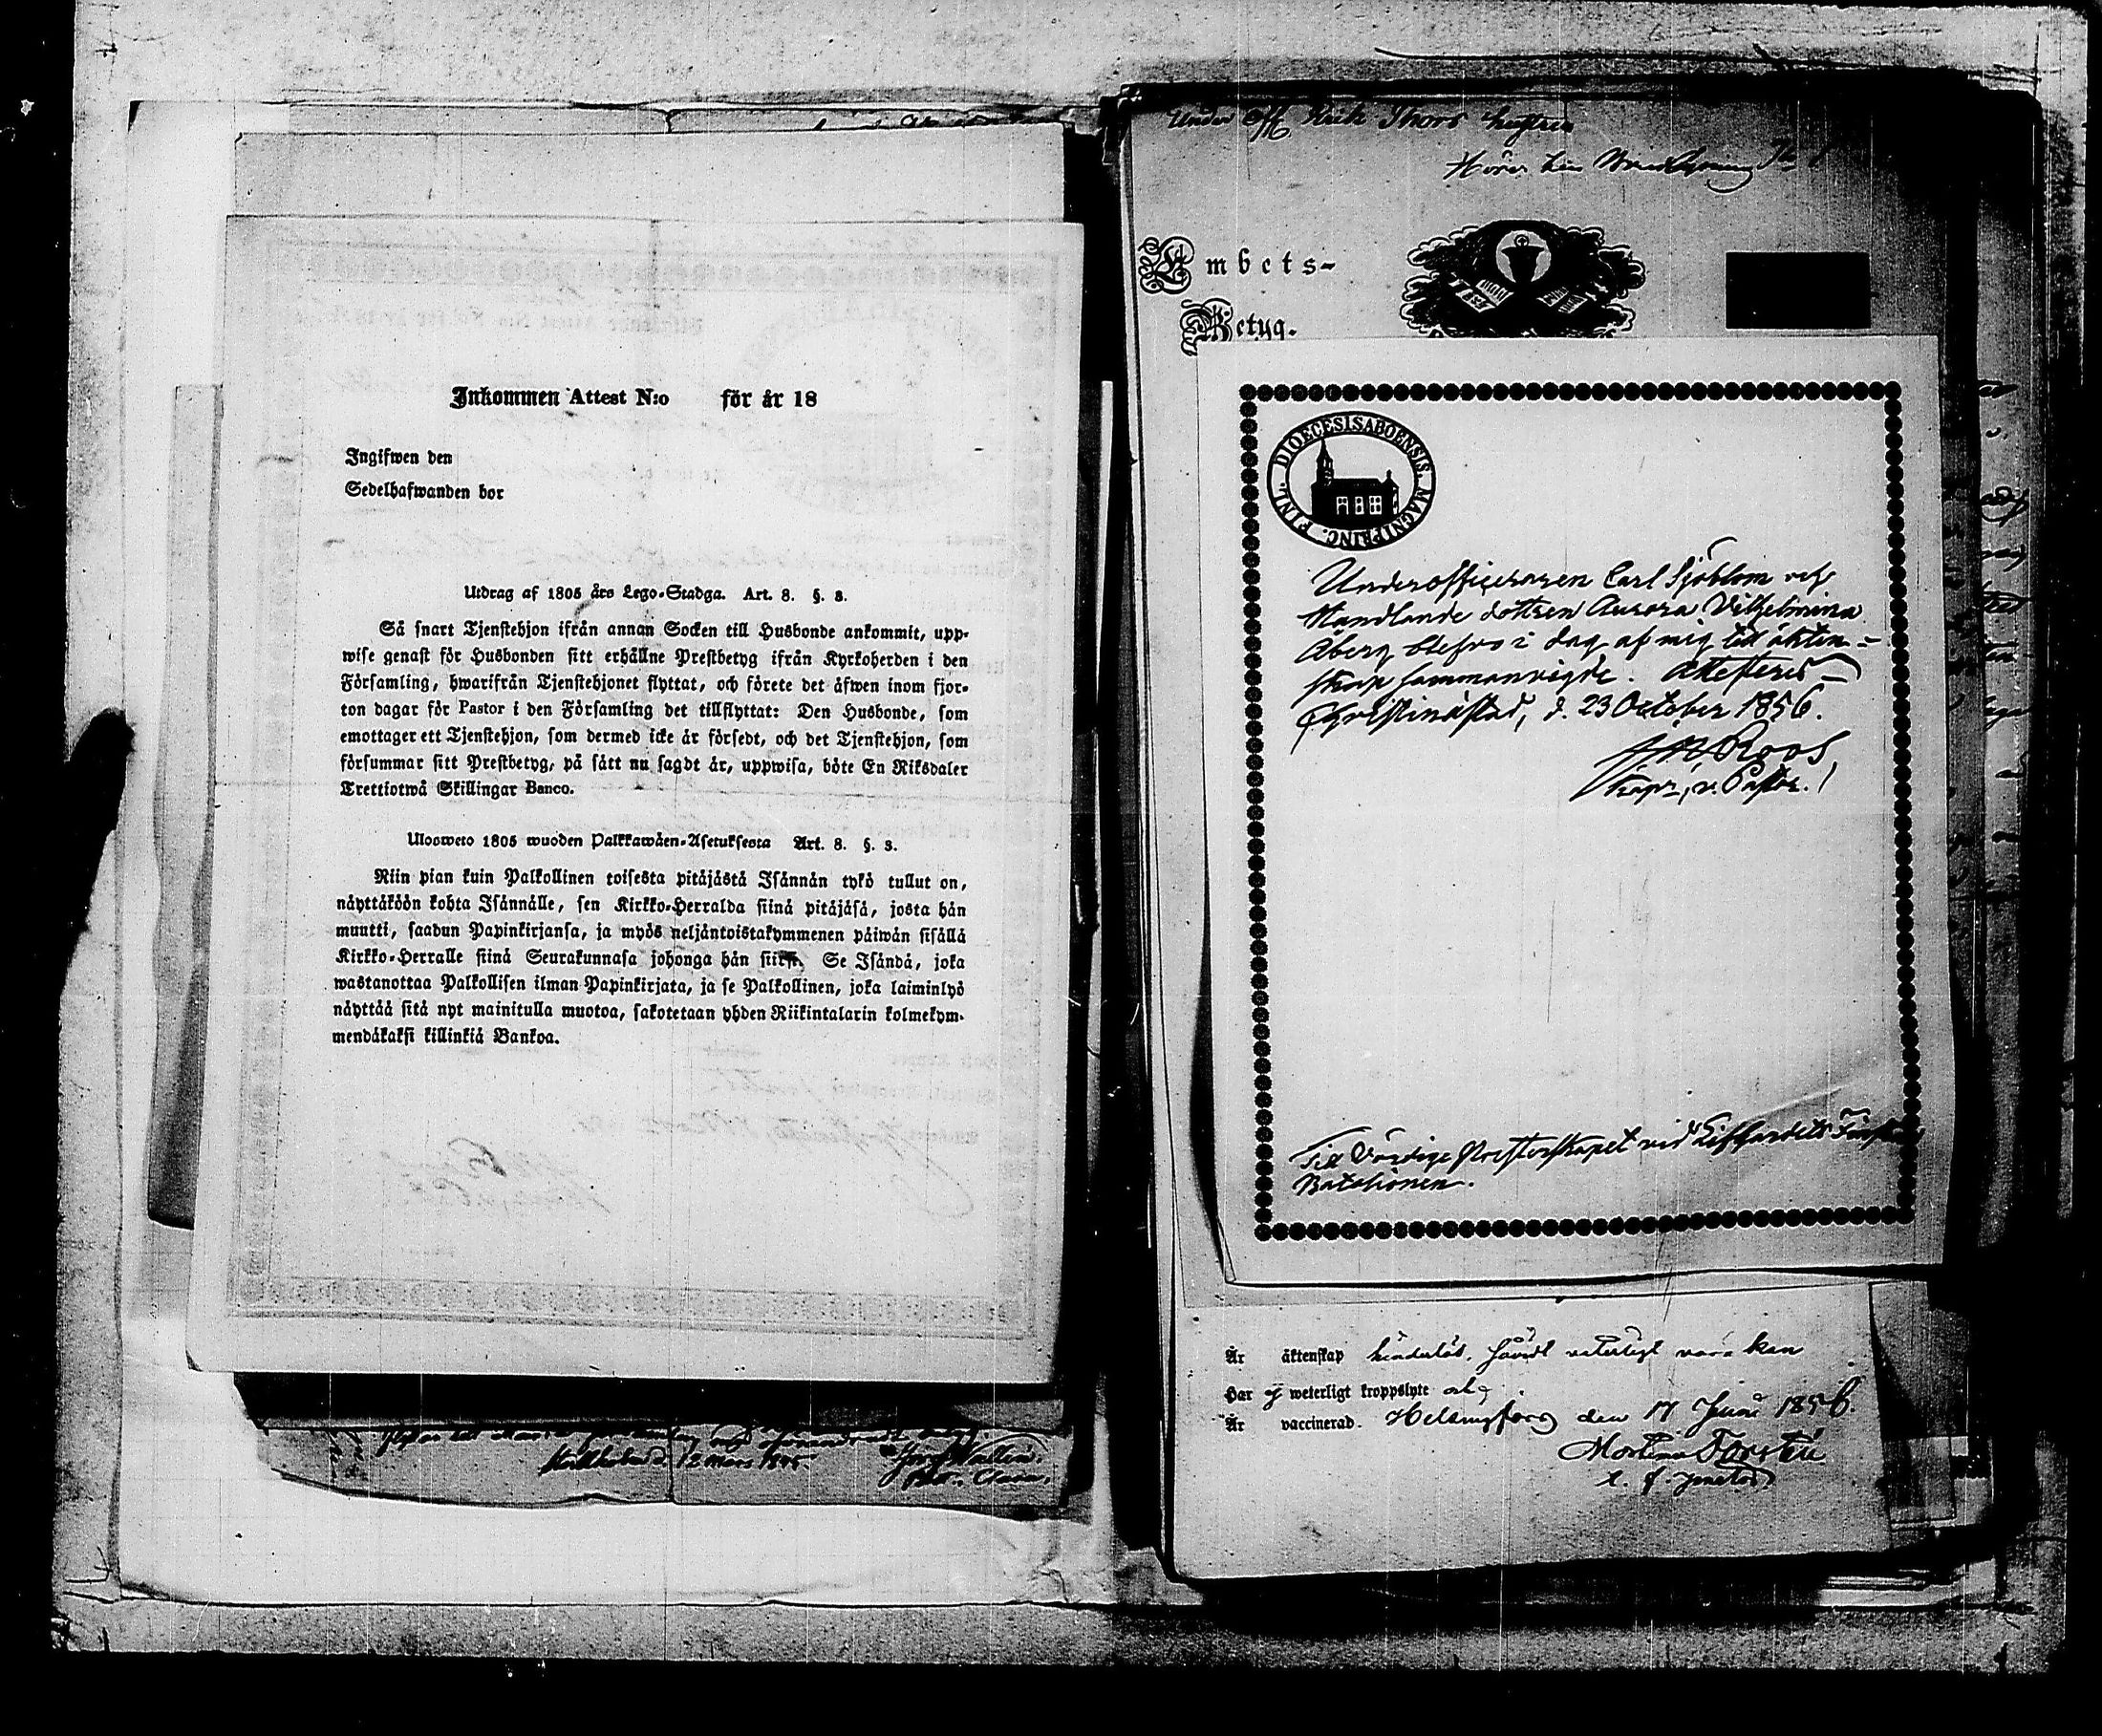 Inkommen Attest N:o för år 18
Ingifwen den
Sedelhafwanden bor
Utdrag af 1805 års Lego-Stadga. Art. 8. §. 3.
Så snart Tjenstehjon ifrån annan Socken till Husbonde ankommit, upp-
wise genast för Husbonden sitt erhållne Prestbetyg ifrån Kyrkoherden i den
Församling, hwarifrån Tjenstehjonet flyttat, och förete det äfwen inom fjor-
ton dagar för Pastor i den Församling det tillflyttat: Den Husbonde, som
emottager ett Tjenstehjon, som dermed icke är försedt, och det Tjenstehjon, som
försummar sitt Prestbetyg, på sätt nu sagdt är, uppwisa, böte En Riksdaler
Trettiotwå Skillingar Banco.
Ulosweto 1805 wuoden Palkkawäen-Asetuksesta Art. 8. §. 3.
Niin pian kuin Palkollinen toisesta pitäjästä Isännän tykö tullut on,
näyttäköön kohta Isännälle, sen Kirkko-Herralda siinä pitäjäsä, josta hän
muutti, saadun Papinkirjansa, ja myös neljäntoistakymmenen päiwän sisällä
Kirkko-Herralle siinä Seurakunnasa johonga hän siirsi. Se Isändä, joka
wastanottaa Palkollisen ilman Papinkirjata, ja se Palkollinen, joka laiminlyö
näyttää sitä nyt mainitulla muotoa, sakotetaan yhden Riikintalarin kolmekym-
mendäkaksi killinkiä Bankoa.
12 Mars
Under Off Thors hustru
Hörer
Embets-
Betyg.
DIOECESIS ABOENSIS. MAGNI PRINC. FINL.
Underofficeraren Carl Sjöblom och
Handlande dottren Aurora Vilhelmina
Åberg blefvo i dag af mig till äkten-
skap sammanvigde. Attesteras
Christinæstad, d. 23 October 1856.
Roos
Kapn, v. Pastor.
Till Vördige Presterskapet vid
Bataljonen.
Är äktenskap hinderlös, såvidt veterligt vara kan
Har ej weterligt kroppslyte och
Är vaccinerad. Helsingfors den 17 Juni 1856.
Forstén